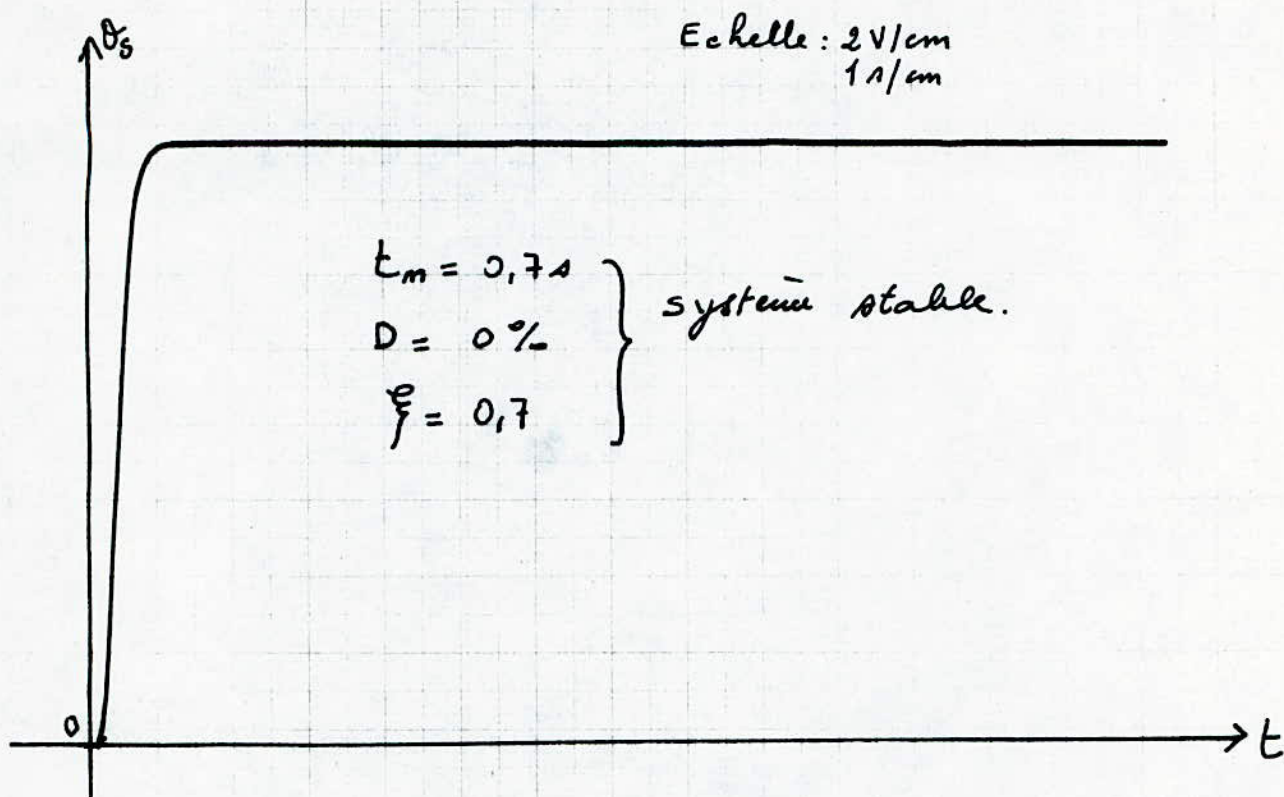 θs
Echelle : 2 V/cm
1 s/cm
tm = 0,7 s
D = 0 %
ξ = 0,7
système stable.
0
t